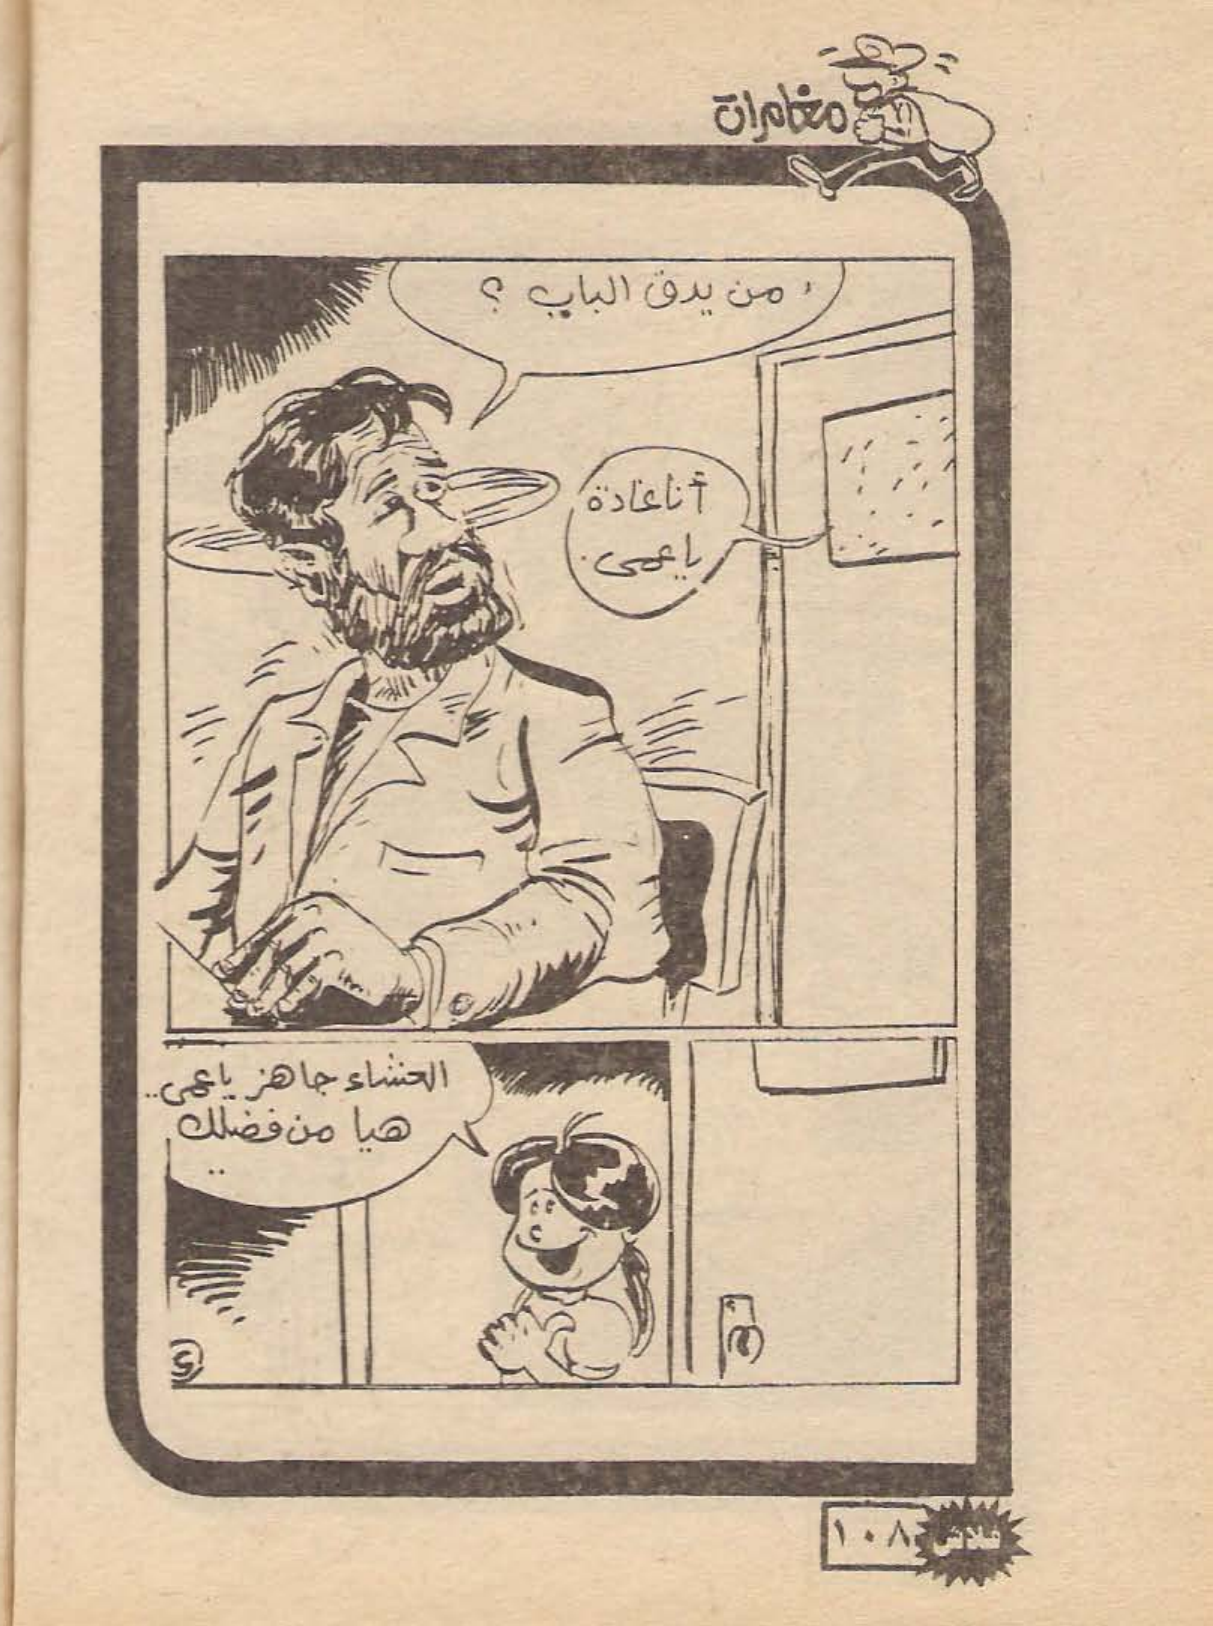 مغامرات
من يدق الباب ؟
أنا غادة
يا عمى .
العشاء جاهز يا عمى ..
هيا من فضلك
..
٤
١٠٨ فلاش